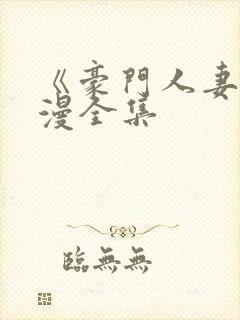 《豪門人妻
漫全集
臨無無